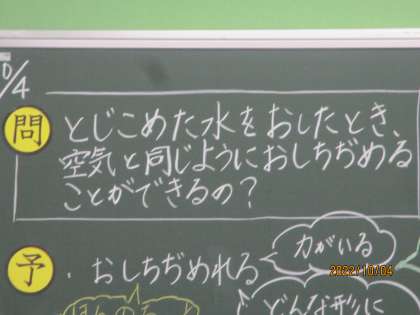 10/4
問
とじこめた水をおしたとき、
空気と同じようにおしちぢめる
ことができるの？
予
・おしちぢめれる
力がいる
2022/10/04
どんな形に